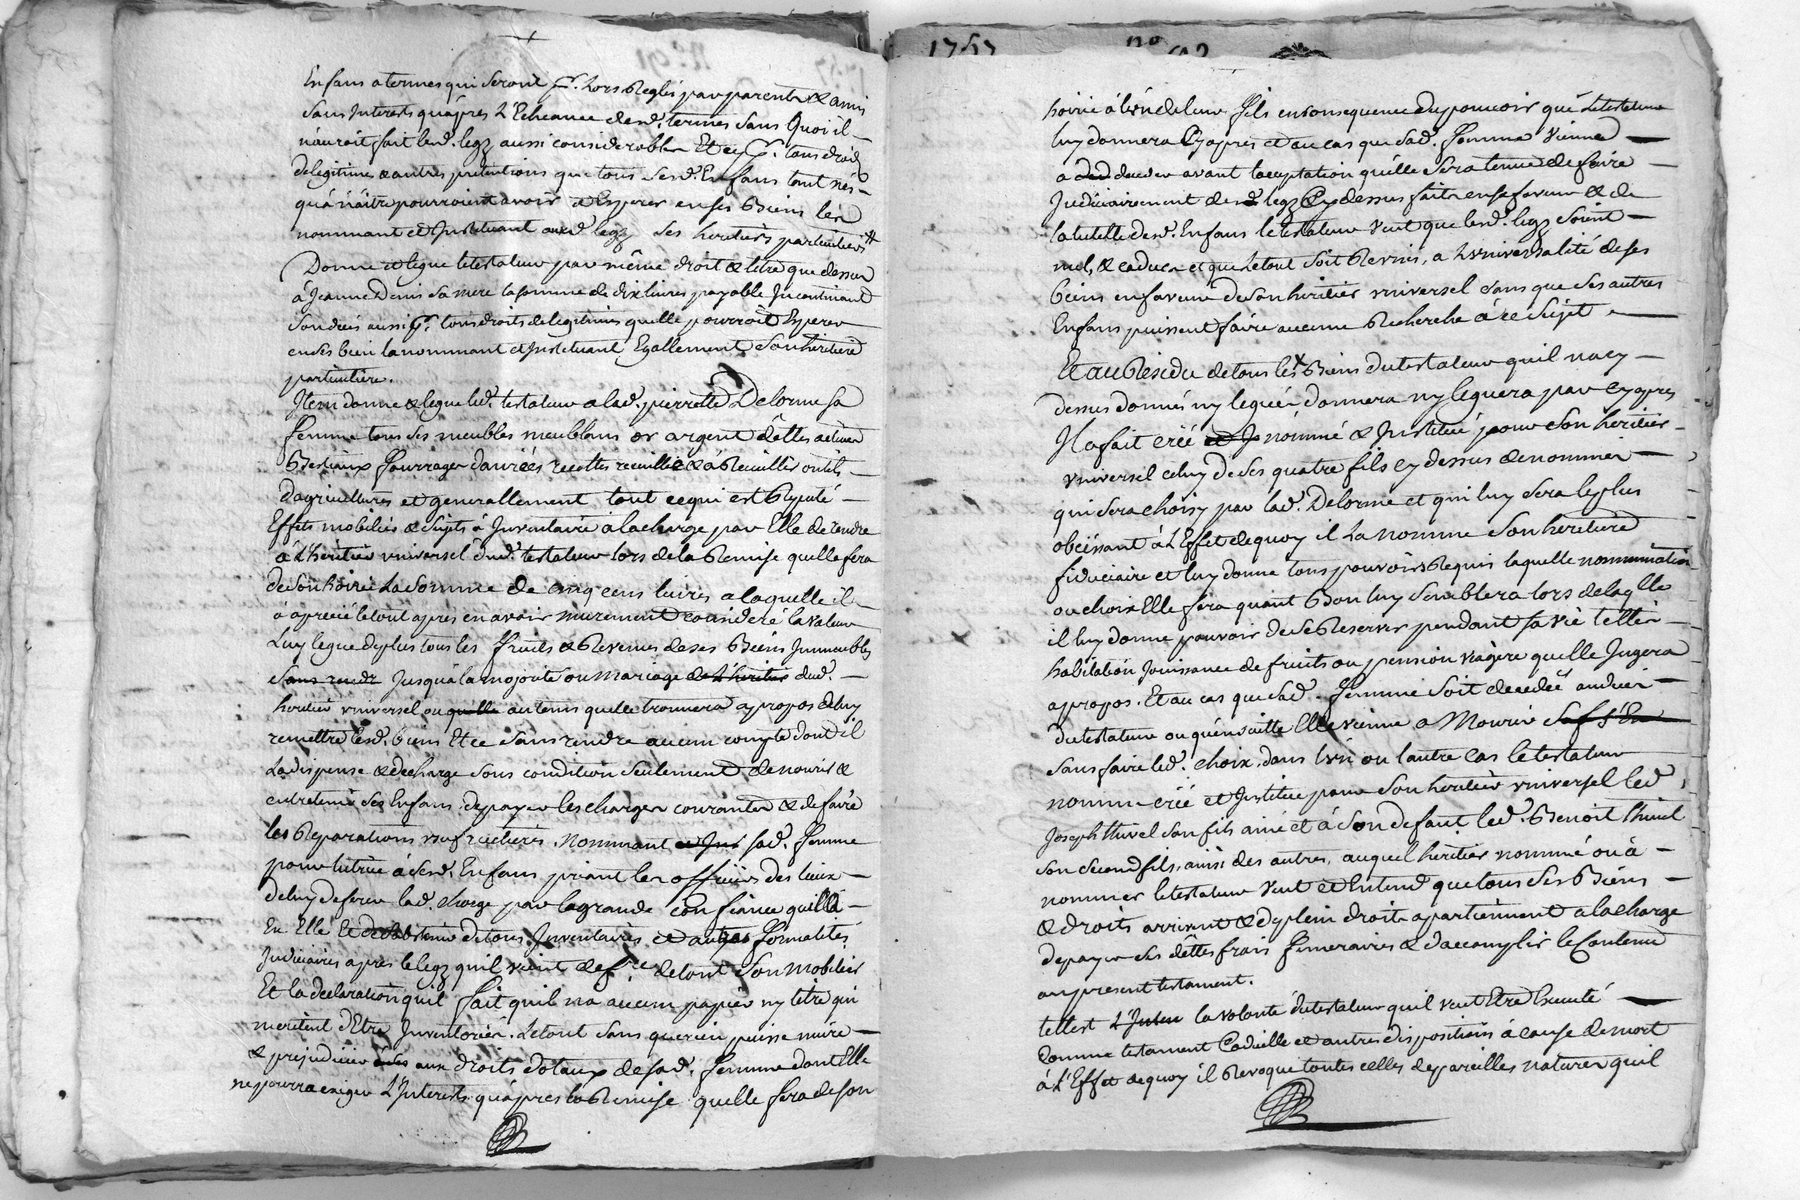 Enfans a termes qui seront pr. Lors Reglés par parents & amis
sans Interests qu'après L'Echeance desd. termes sans Quoi il
n'auroit fait lesd. legz aussi considerables Et ce pr. tous droits
de legitime & autres pretentions que tous sesd. Enfans tant nés
qu'a n'aître pourroient avoir & Esperer en ses Biens les
nommant et Instituant auxd. legz ses heritiers particuliers
Donne et legue le testateur par même droit & titre que dessus
à Jeanne Denis sa mere la somme de dix livres payable Incontinant
son deces aussi pr. tous droits de legitimes quelle pourroit Esperer
en ses bien la nommant et Instituant Egallement son heritiere
particuliere.
Item donne & legue led. testateur a lad. pierrette Delorme sa
femme tous ses meubles meublans or argent dêttes actives
Bestiaux fourrages danrées recoltes recueillies & à Recueillir outils
d'agricultures et generallement tout ce qui est Reputé
Effets mobiliers & sujets à Inventaire à la charge par Elle de rendre
à L'heritier universel dud. testateur lors de la Remise quelle fera
de son hoirie La somme de cinq cens livres a laquelle il
à aprecié le tout apres en avoir murement considéré la valeur
Luy legue de plus tous les fruits & Revenus de ses Biens Immeubles
sans rendr Jusqu'à la majorité ou mariage de L'heritier dud.
heritier universel ou quelle au tems quelle trouvera apropos de luy
remettre lesd. biens Et ce sans rendre aucun compte dont il
La dispense & decharge sous condition seulement de nourir &
entretenir ses Enfans, de payer les charges courantes & de faire
les Reparations usufructieres. Nommant et Ins sad. femme
pour tutrice à sesd. Enfans priant les officiers des lieux
de luy deferer lad. charge par la grande confiance quil a
En Elle Et de tous Inventaires et autres formalités
Judiciaires apres le legz qu'il vient de fre. de tout son mobilier
Et la declaration qu'il fait qu'il n'a aucun papier ny titre qui
meritent d'Etre Inventoriés. Le tout sans que rien puisse nuire
& prejudicier aux droits dotaux de sad. femme dont Elle
ne pourra exiger L'Interests qu'àpres la Remise quelle fera de son
1757 No 92
hoirie à l'un de leur fils en consequence du pouvoir que le testateur
luy donnera Cy apres et au cas que sad. femme vienne
a deceder avant l'aceptation qu'elle sera tenue de faire
Judiciairement desd. legz Cy dessus faits en sa faveur & de
la tutelle desd. Enfans le testateur veut que lesd. legz soient
nuls & caducs et que Le tout soit Reunis, a L'universalité de ses
biens en faveur de son heritier universel sans que ses autres
Enfans puissent faire aucune Recherche à ce sujet
Et au Residu de tous les Biens du testateur qu'il n'a cy
dessus donnés ny legués donnera ny leguera par cy apres
Il a fait créé et I nommé & Institué pour son heritier
universel celuy de ses quatre fils cy dessus denommés
qui sera choisy par lad. Delorme et qui luy sera le plus
obeissant à L'Effet de quoy il La nomme son heritiere
fiduciaire et luy donne tous pouvoirs Requis laquelle nommination
ou choix Elle fera quant Bon luy semblera lors delaqlle
il luy donne pouvoir de se Reserver pendant sa vie telles
habitation Jouissance de fruits ou pension viagere quelle Jugera
apropos. Et au cas que sad. femme soit decedée au deces
du testateur ou qu'ensuitte Elle vienne a Mourir
sans faire led. choix, dans l'un ou l'autre cas le testateur
nomme créé et Institue pour son heritier universel led.
Joseph thivel son fils ainé et à son defaut led. Benoit thivel
son second fils, ainsi des autres, auquel heritier nommé ou à
nommer le testateur veut et Entend que tous ses Biens
& droits arrivent & de plein droit apartiennent a la charge
de payer ses dêttes frais funeraires & d'accomplir le Contenu
au present testament.
telle est L'Inten la volonté du testateur qu'il veut Etre Executé
Comme testament Codicille et autres dispositions à cause de mort
à L'Effet de quoy il Revoque toutes celles de pareilles natures qu'il